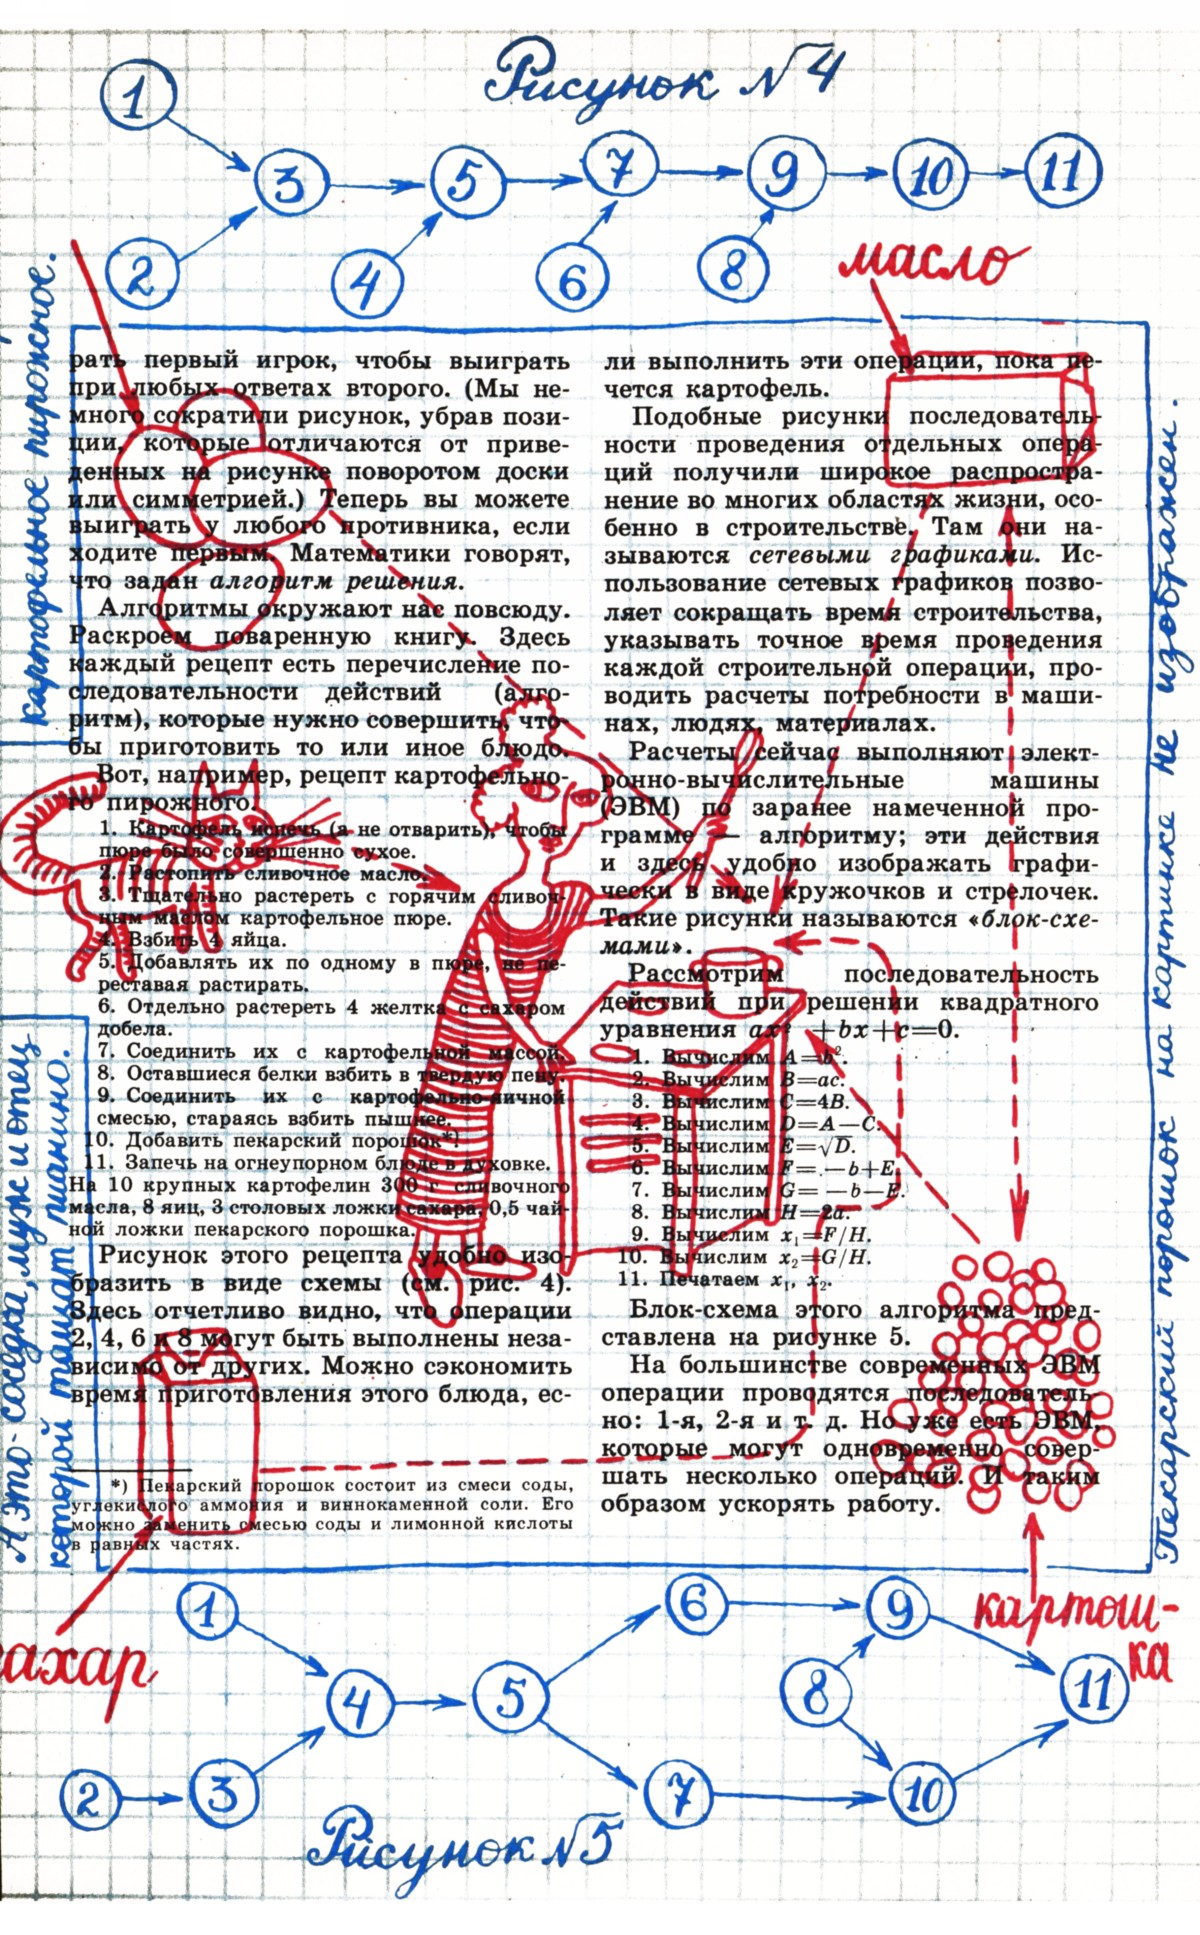 Рисунок №4
1
3
5
7
9
10
11
2
4
6
8
масло
картофельное пирожное.
рать первый игрок, чтобы выиграть
при любых ответах второго. (Мы не-
много сократили рисунок, убрав пози-
ции, которые отличаются от приве-
денных на рисунке поворотом доски
или симметрией.) Теперь вы можете
выиграть у любого противника, если
ходите первым. Математики говорят,
что задан алгоритм решения.
Алгоритмы окружают нас повсюду.
Раскроем поваренную книгу. Здесь
каждый рецепт есть перечисление по-
следовательности действий (алго-
ритм), которые нужно совершить, что-
бы приготовить то или иное блюдо.
Вот, например, рецепт картофельно-
го пирожного.
1. Картофель испечь (а не отварить), чтобы
пюре было совершенно сухое.
2. Растопить сливочное масло.
3. Тщательно растереть с горячим сливоч-
ным маслом картофельное пюре.
4. Взбить 4 яйца.
5. Добавлять их по одному в пюре, не пе-
реставая растирать.
6. Отдельно растереть 4 желтка с сахаром
добела.
7. Соединить их с картофельной массой.
8. Оставшиеся белки взбить в твердую пену.
9. Соединить их с картофельно-яичной
смесью, стараясь взбить пышнее.
10. Добавить пекарский порошок*)
11. Запечь на огнеупорном блюде в духовке.
На 10 крупных картофелин 300 г сливочного
масла, 8 яиц, 3 столовых ложки сахара, 0,5 чай-
ной ложки пекарского порошка.
Рисунок этого рецепта удобно изо-
бразить в виде схемы (см. рис. 4).
Здесь отчетливо видно, что операции
2, 4, 6 и 8 могут быть выполнены неза-
висимо от других. Можно сэкономить
время приготовления этого блюда, ес-
*) Пекарский порошок состоит из смеси соды,
углекислого аммония и виннокаменной соли. Его
можно заменить смесью соды и лимонной кислоты
в равных частях.
ли выполнить эти операции, пока пе-
чется картофель.
Подобные рисунки последователь-
ности проведения отдельных опера-
ций получили широкое распростра-
нение во многих областях жизни, осо-
бенно в строительстве. Там они на-
зываются сетевыми графиками. Ис-
пользование сетевых графиков позво-
ляет сокращать время строительства,
указывать точное время проведения
каждой строительной операции, про-
водить расчеты потребности в маши-
нах, людях, материалах.
Расчеты сейчас выполняют элект-
ронно-вычислительные машины
(ЭВМ) по заранее намеченной про-
грамме — алгоритму; эти действия
и здесь удобно изображать графи-
чески в виде кружочков и стрелочек.
Такие рисунки называются «блок-схе-
мами».
Рассмотрим последовательность
действий при решении квадратного
уравнения ax² +bx+c=0.
1. Вычислим A=b².
2. Вычислим B=ac.
3. Вычислим C=4B.
4. Вычислим D=A—C.
5. Вычислим E=√D.
6. Вычислим F=—b+E.
7. Вычислим G=—b—E.
8. Вычислим H=2a.
9. Вычислим x₁=F/H.
10. Вычислим x₂=G/H.
11. Печатаем x₁, x₂.
Блок-схема этого алгоритма пред-
ставлена на рисунке 5.
На большинстве современных ЭВМ
операции проводятся последователь-
но: 1-я, 2-я и т. д. Но уже есть ЭВМ,
которые могут одновременно совер-
шать несколько операций. И таким
образом ускорять работу.
А это - соседка, муж и отец
которой таскают пианино.
Пекарский порошок на картинке не изображен.
сахар
картош-
ка
1
6
9
4
5
8
11
2
3
7
10
Рисунок №5